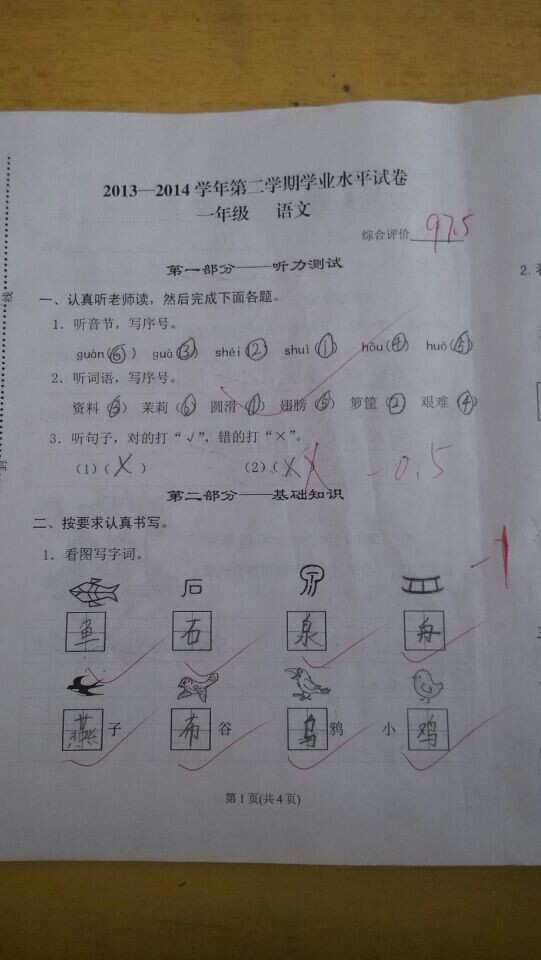 2013—2014学年第二学期学业水平试卷
一年级 语文
综合评价 97.5
第一部分——听力测试
一、认真听老师读，然后完成下面各题。
1．听音节，写序号。
guàn(⑥) guà(③) shéi(②) shuì(①) hǒu(④) huǒ(⑤)
2．听词语，写序号。
资料(③) 茉莉(⑥) 圆滑(①) 翅膀(⑤) 箩筐(②) 艰难(④)
3．听句子，对的打“√”，错的打“×”。
(1)(×) (2)(×) -0.5
第二部分——基础知识
二、按要求认真书写。
1．看图写字词。
-1
鱼 石 泉 舟
燕子 布谷 乌鸦 小鸡
第1页(共4页)
线
封
2.